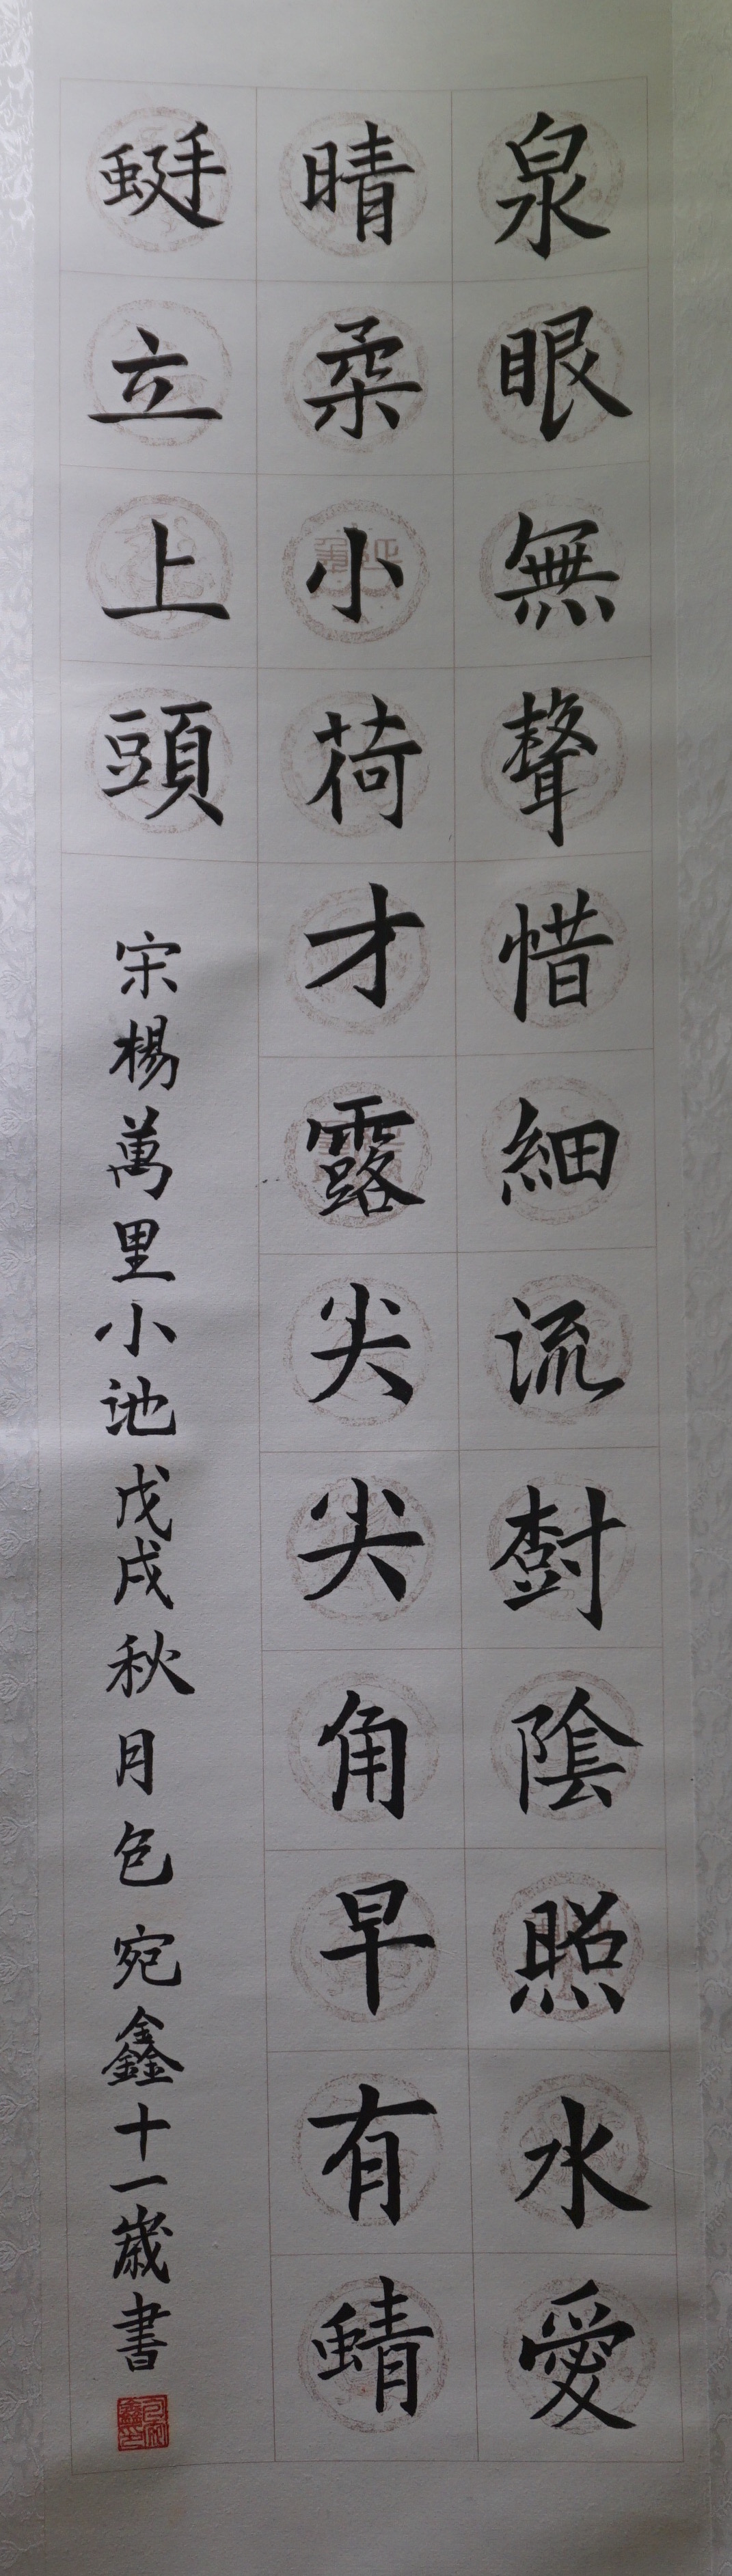 泉眼無聲惜細流樹陰照水愛
晴柔小荷才露尖尖角早有蜻
蜓立上頭
宋楊萬里小池戊戌秋月包宛鑫十一歲書